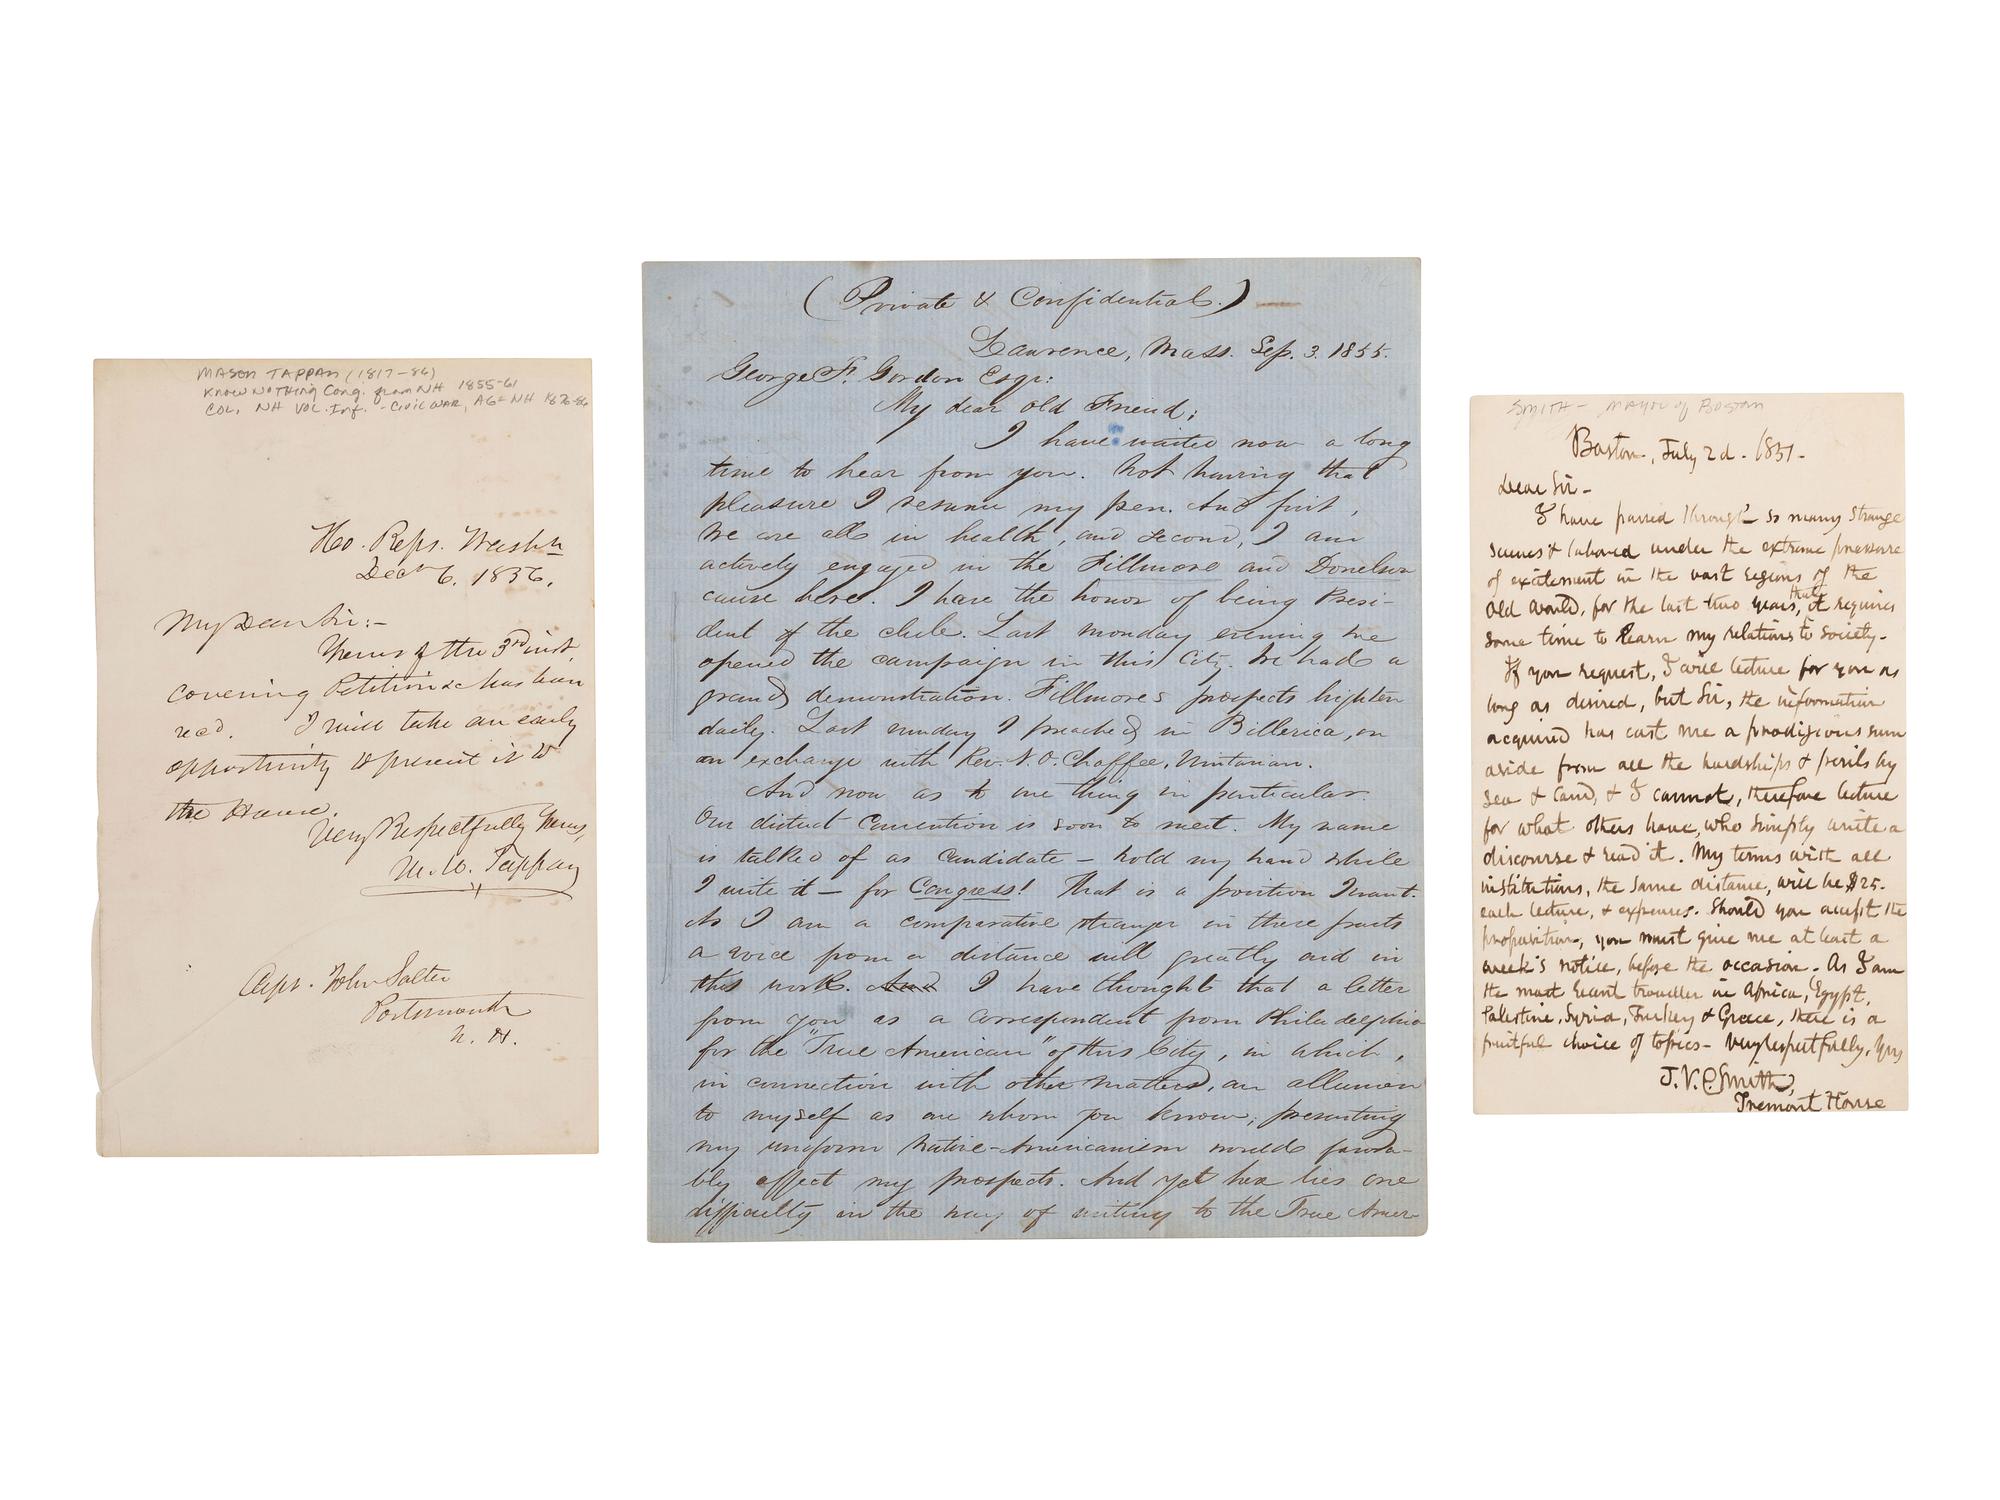 MASON TAPPAN (1817-86)
KNOW NOTHING Cong. from NH 1855-61
COL, NH VOL. Inf. - CIVIL WAR, AG - NH 1876-86
Ho. Reps. Washn
Decr 6. 1856.
My Dear Sir:-
Yours of the 3rd inst,
covering Petition &c has been
recd. I will take an early
opportunity to present it to
the House.
Very Respectfully Yours,
M. W. Tappan
Capt. John Salter
Portsmouth
N. H.
(Private & Confidential.)
Lawrence, Mass. Sep. 3. 1855.
George F. Gordon Esqr:
My dear old Friend;
I have waited now a long
time to hear from you. Not having that
pleasure I resume my pen. And first,
we are all in health, and second, I am
actively engaged in the Fillmore and Donelson
cause here. I have the honor of being Presi-
dent of the club. Last monday evening we
opened the campaign in this City. We had a
grand demonstration. Fillmores prospects brighten
daily. Last sunday I preached in Billerica, on
an exchange with Rev. N. O. Chaffee, Unitarian.
And now as to one thing in particular.
Our district Convention is soon to meet. My name
is talked of as Candidate - hold my hand while
I write it - for Congress! That is a position I want.
As I am a comparative stranger in these parts
a voice from a distance will greatly aid in
this work. I have thought that a letter
from you as a correspondent from Philadelphia
for the "True American" of this City, in which,
in connection with other matters, an allusion
to myself as one whom you know, presenting
my uniform Native-Americanism would favora-
bly affect my prospects. And yet here lies one
difficulty in the way of writing to the True Amer-
SMITH - MAYOR of BOSTON
Boston, July 2d. 1851-
Dear Sir-
I have passed through so many strange
scenes & labored under the extreme pressure
of excitement in the vast regions of the
Old World, for the last two years, that it requires
some time to learn my relations to society-
If you request, I will lecture for you as
long as desired, but Sir, the information
acquired has cost me a prodigious sum
aside from all the hardships & perils by
sea & land, & I cannot, therefore lecture
for what others have, who simply write a
discourse & read it. My terms with all
institutions, the same distance, will be $25-
each lecture, & expenses. Should you accept the
proposition, you must give me at least a
week's notice, before the occasion. As I am
the most recent traveller in Africa, Egypt,
Palestine, Syria, Turkey & Greece, there is a
fruitful choice of topics- Very respectfully, Yrs
J. V. C. Smith,
Tremont House